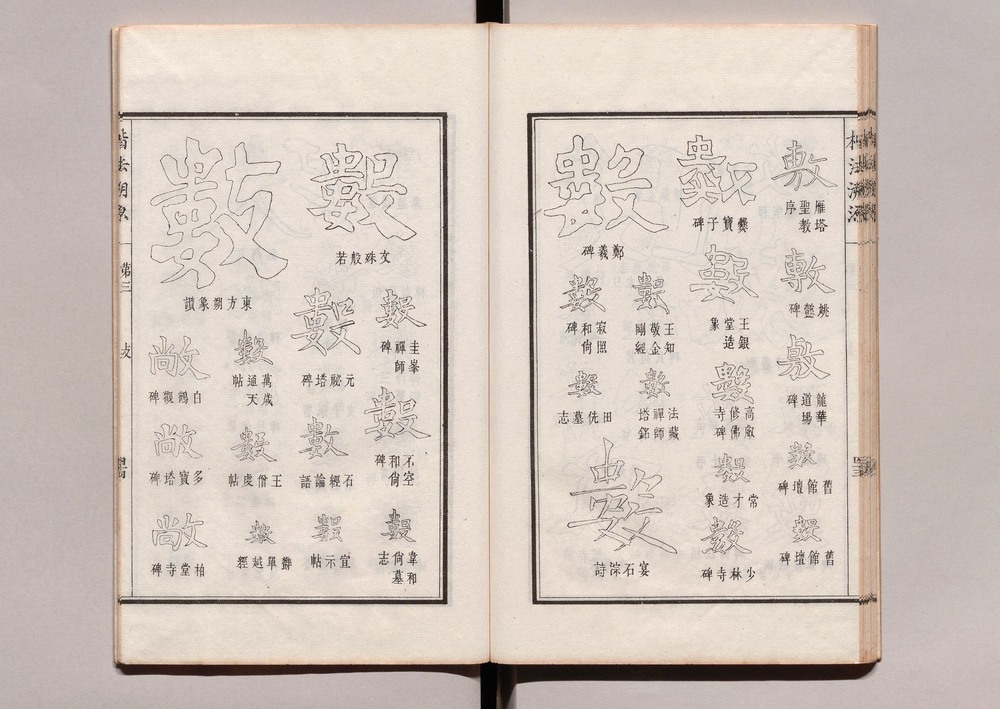 敷
雁塔聖教序
敷
姚懿碑
敷
龍華道場碑
數
舊館壇碑
數
舊館壇碑
數
爨寶子碑
數
王銀堂造象
數
高叡修佛寺碑
數
常才造象
數
少林寺碑
數
鄭羲碑
數
王知敬金剛經
數
寂照和尚碑
數
法藏禪師塔銘
數
田侁墓志
數
宴石淙詩
數
文殊般若
數
圭峯禪師碑
數
元祕塔碑
數
不空和尚碑
數
石經論語
數
韋和尚墓志
數
宜示帖
數
東方朔象讚
數
萬歲通天帖
數
王僧虔帖
數
鬱單越經
敞
白鶴觀碑
敞
多寶塔碑
敞
柏堂寺碑
楷法溯源
第三
攴